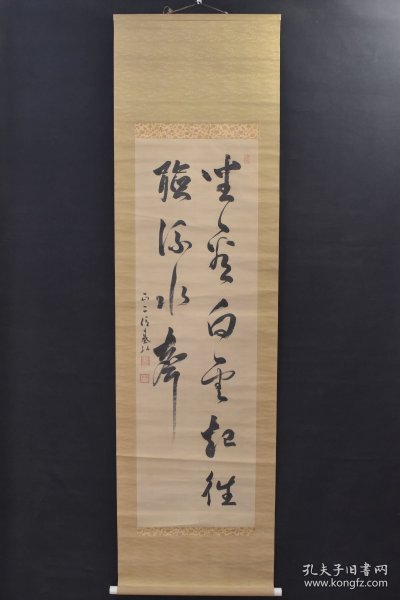 坐看白雲起徃
聴流水聲
正二位基
孔夫子旧书网
www.kongfz.com